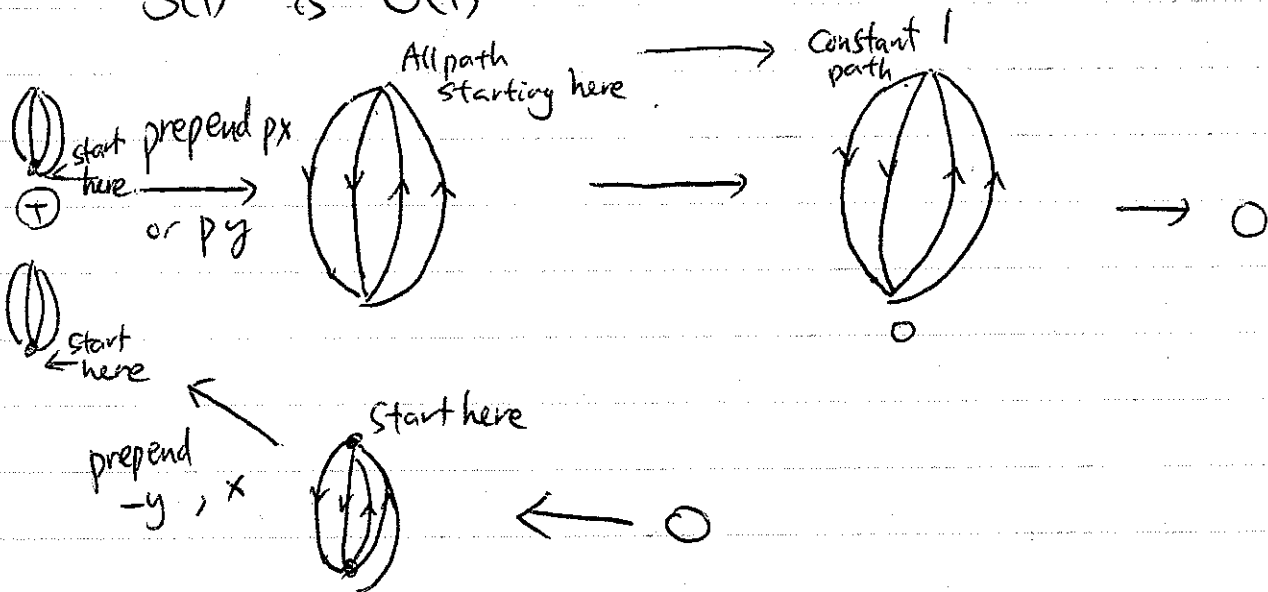 is
All path
starting here
Constant 1
path
start
here
prepend px
or py
+
0
0
start
here
Start here
prepend
-y, x
0